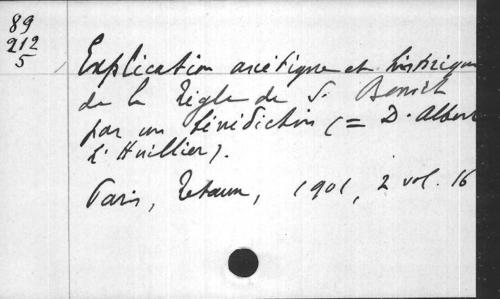 89
212
5
Explication ascétique et historique
de la Règle de S. Benoît
par un bénédictin (= D. Albert
L'Huillier).
Paris, Retaux, 1901, 2 vol. 16